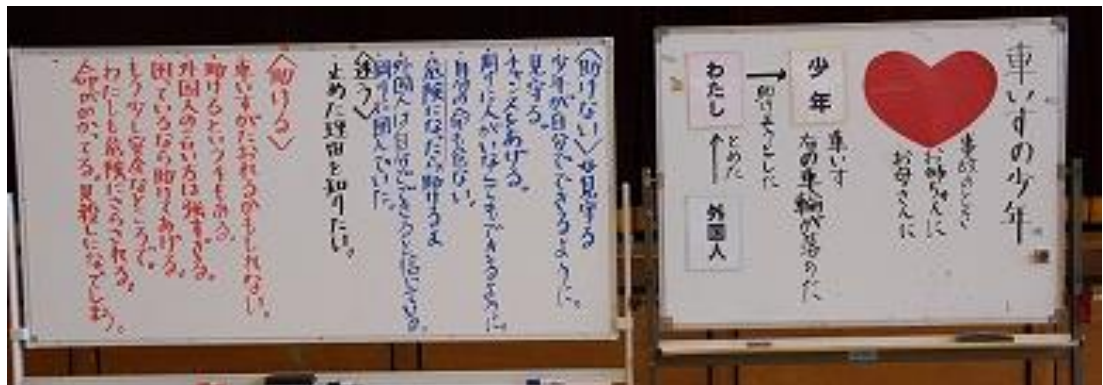 車いすの少年
事故のとき
お姉ちゃんに
お母さんに
少年
車いす
右の車輪が落ちた
わたし
助けようとした
とめた
外国人
〈助けない〉見守る
少年が自分でできるように。
見守る。
チャンスをあげる。
周りに人がいなくてもできるように。
自分の命も危ない
危険になったら助けるよ
外国人は自分でできると信じている。
周りに囲んでいた。
〈迷う〉
止めた理由を知りたい。
〈助ける〉
車いすがたおれるかもしれない。
助けるというプチもある。
外国人の言い方は強すぎる。
困っているなら助けてあげる。
もう少し安全なところで。
わたしも危険にさらされる。
命がかかってる。見殺しになってしまう。